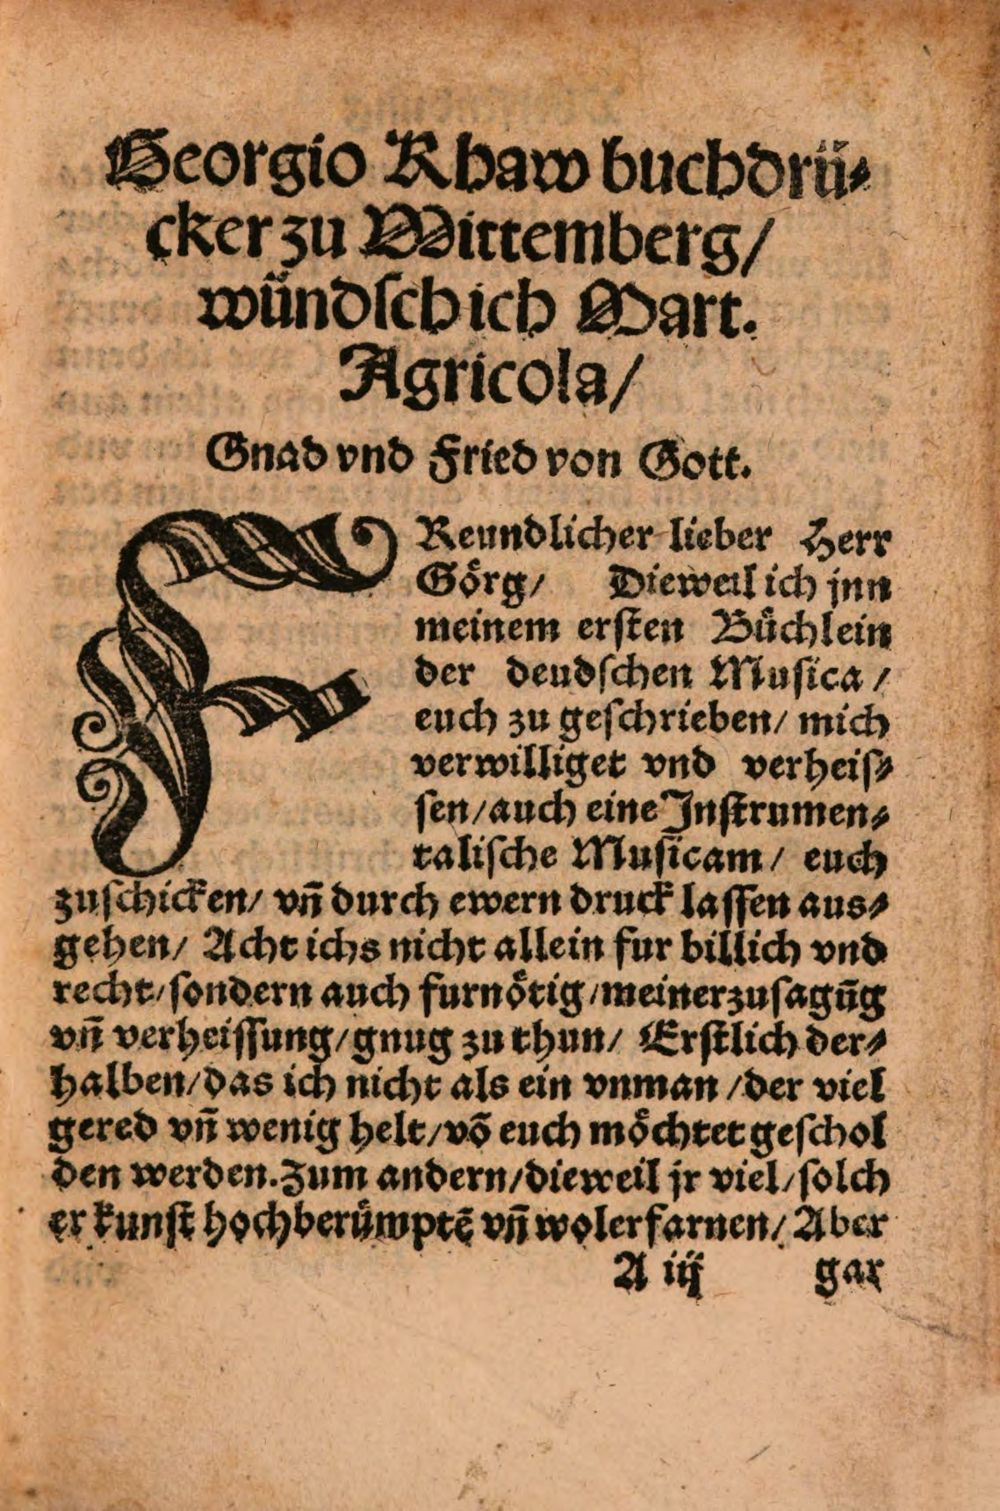 Georgio Rhaw buchdrü⸗
cker zu Wittemberg/
wündsch ich Mart.
Agricola/
Gnad vnd Fried von Gott.
FReundlicher lieber Herr
Görg/ Dieweil ich jnn
meinem ersten Büchlein
der deudschen Musica /
euch zu geschrieben/ mich
verwilliget vnd verheis⸗
sen/auch eine Instrumen⸗
talische Musicam/ euch
zuschicken/ vñ durch ewern druck lassen aus⸗
gehen/ Acht ichs nicht allein fur billich vnd
recht/sondern auch furnötig/meiner zusagũg
vñ verheissung/gnug zu thun/ Erstlich der⸗
halben/das ich nicht als ein vnman /der viel
gered vñ wenig helt/võ euch möchtet geschol
den werden. Zum andern/dieweil jr viel/solch
er kunst hochberümptẽ vñ wolerfarnen/ Aber
A iij gar